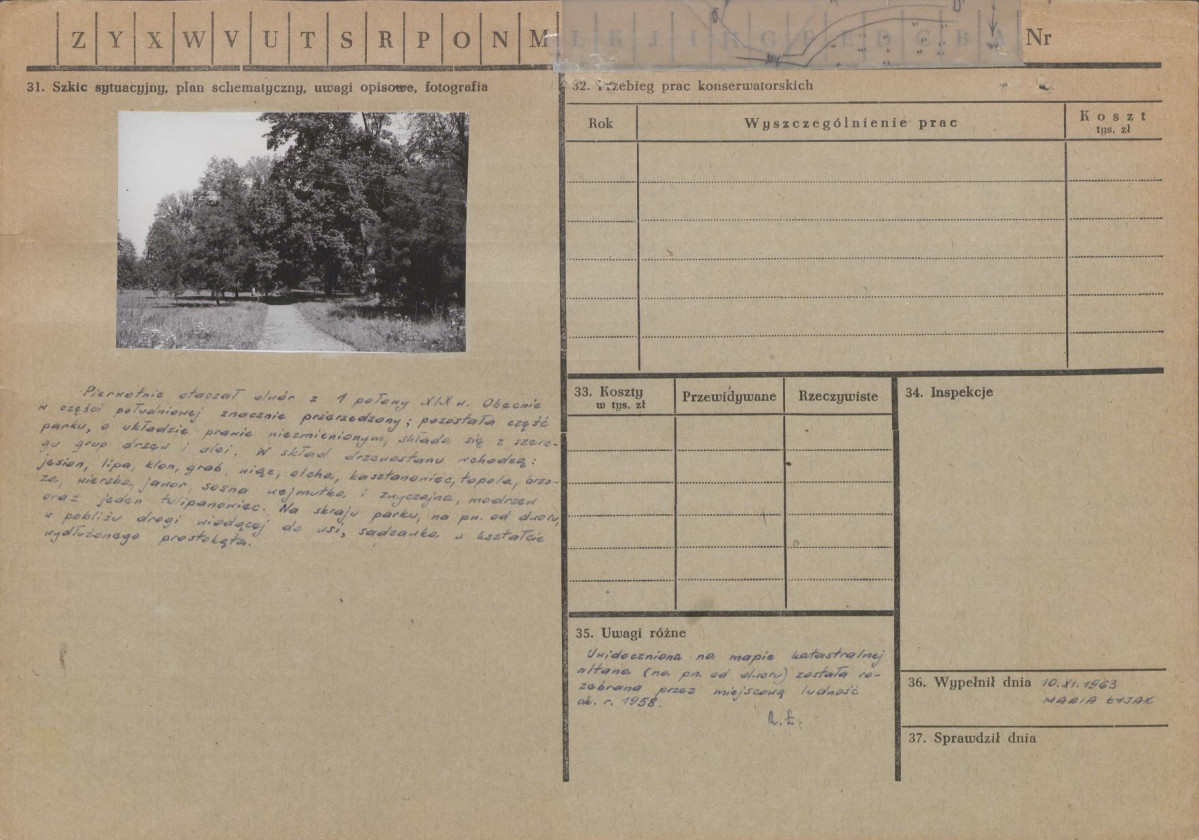 Z Y X W V U T S R P O N M L K J I H G F E D C B A Nr
31. Szkic sytuacyjny, plan schematyczny, uwagi opisowe, fotografia
Pierwotnie otaczał dwór z 1 połowy XIX w. Obecnie
w części południowej znacznie przerzedzony; pozostała część
parku, o układzie prawie niezmienionym, składa się z szere-
gu grup drzew i alei. W skład drzewostanu wchodzą:
jesion, lipa, klon, grab, wiąz, olcha, kasztanowiec, topola, brzo-
za, wierzba, jawor, sosna wejmutka i zwyczajna, modrzew
oraz jeden tulipanowiec. Na skraju parku, na pn. od dworu,
w pobliżu drogi wiodącej do wsi, sadzawka w kształcie
wydłużonego prostokąta.
32. Przebieg prac konserwatorskich
Rok
Wyszczególnienie prac
Koszt
tys. zł
33. Koszty
w tys. zł
Przewidywane
Rzeczywiste
34. Inspekcje
35. Uwagi różne
Uwidoczniona na mapie katastralnej
altana (na pn. od dworu) została ro-
zebrana przez miejscową ludność
ok. r. 1958.
36. Wypełnił dnia 10.XI.1963
MARIA ŁYJAK
37. Sprawdził dnia